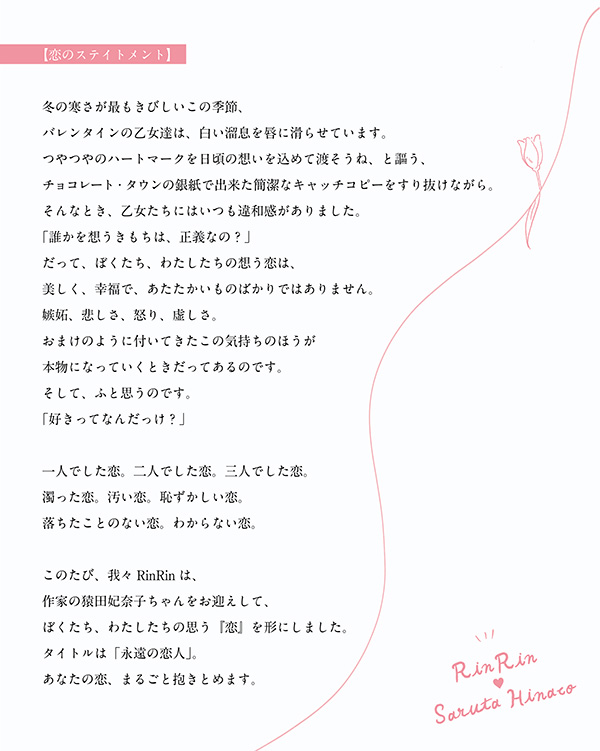 【恋のステイトメント】
冬の寒さが最もきびしいこの季節、
バレンタインの乙女達は、白い溜息を唇に滑らせています。
つやつやのハートマークを日頃の想いを込めて渡そうね、と謳う、
チョコレート・タウンの銀紙で出来た簡潔なキャッチコピーをすり抜けながら。
そんなとき、乙女たちにはいつも違和感がありました。
「誰かを想うきもちは、正義なの？」
だって、ぼくたち、わたしたちの想う恋は、
美しく、幸福で、あたたかいものばかりではありません。
嫉妬、悲しさ、怒り、虚しさ。
おまけのように付いてきたこの気持ちのほうが
本物になっていくときだってあるのです。
そして、ふと思うのです。
「好きってなんだっけ？」
一人でした恋。二人でした恋。三人でした恋。
濁った恋。汚い恋。恥ずかしい恋。
落ちたことのない恋。わからない恋。
このたび、我々 RinRin は、
作家の猿田妃奈子ちゃんをお迎えして、
ぼくたち、わたしたちの思う『恋』を形にしました。
タイトルは「永遠の恋人」。
あなたの恋、まるごと抱きとめます。
RinRin
♥
Saruta Hinaco